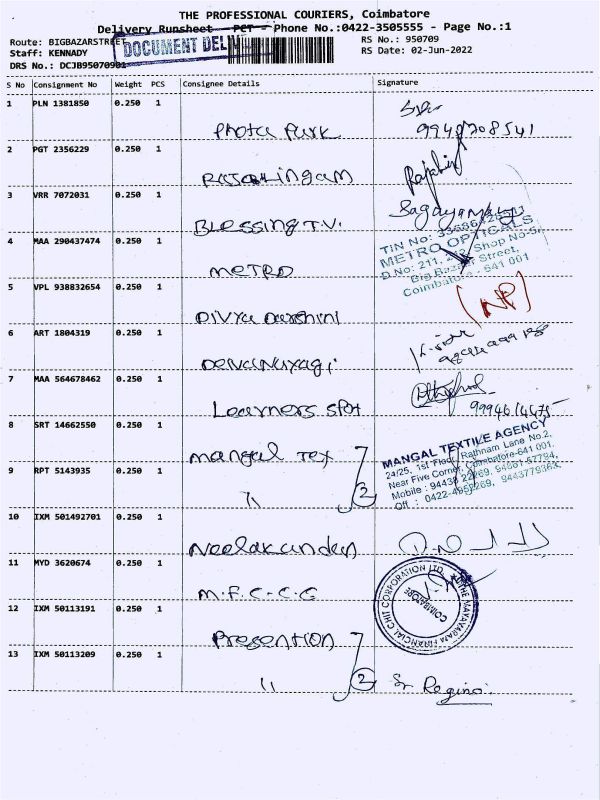 THE PROFESSIONAL COURIERS, Coimbatore
Delivery Runsheet - PCT - Phone No.:0422-3505555 - Page No.:1
Route: BIGBAZARSTREET
RS No.: 950709
DOCUMENT DELIV
Staff: KENNADY
RS Date: 02-Jun-2022
DRS No.: DCJB95070901
S No Consignment No Weight PCS Consignee Details Signature
1 PLN 1381850 0.250 1
Photo Park 9948708541
2 PGT 2356229 0.250 1
Rajalingam
3 VRR 7072031 0.250 1
Blessing T.V.
4 MAA 290437474 0.250 1
METRO
TIN No:
METRO OPTICALS
D.No: 211, Shop No-5,
Big Bazaar Street,
Coimbatore - 641 001
5 VPL 938832654 0.250 1
Divya Darshini (NP)
6 ART 1804319 0.250 1
Deivanayagi
7 MAA 564678462 0.250 1
Learners spot
8 SRT 14662550 0.250 1
mangal Tex
MANGAL TEXTILE AGENCY
24/25, 1st Floor, Rathnam Lane No.2,
Near Five Corner, Coimbatore-641 001.
9 RPT 5143935 0.250 1
Mobile : 94438 22269,
Off : 0422-4958269,
" 2
10 IXM 501492701 0.250 1
Neelakanden
11 MYD 3620674 0.250 1
M.F.C.C.G
THE MAYAVARAM FINANCIAL CHIT CORPORATION LTD.
COIMBATORE
12 IXM 50113191 0.250 1
Presention
13 IXM 50113209 0.250 1
" 2 Sr Regina.